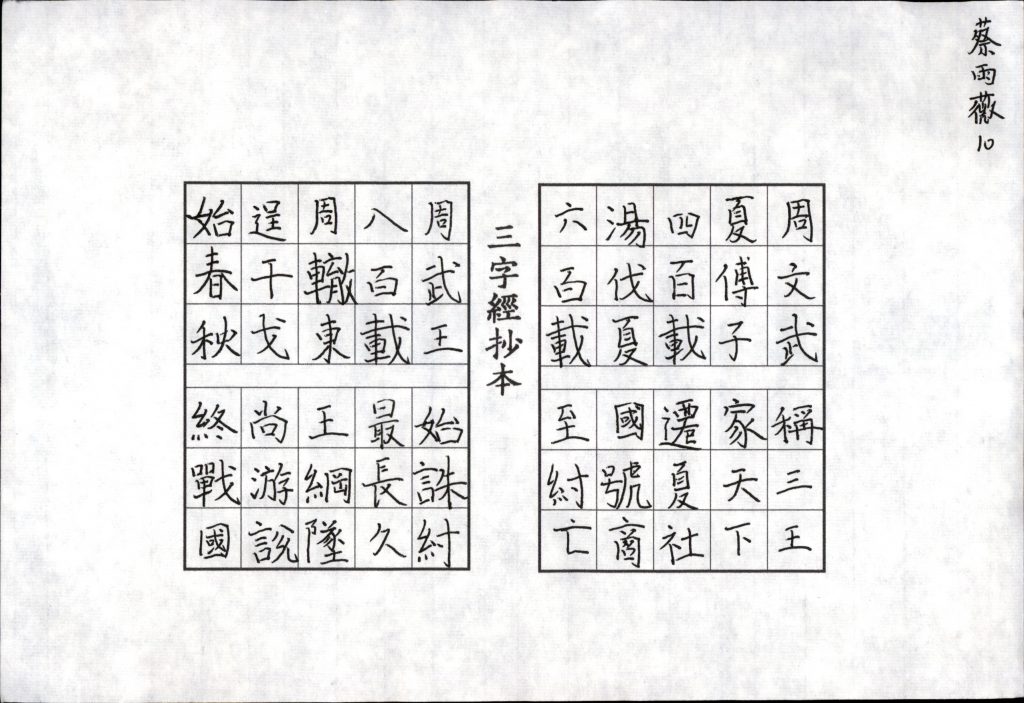 蔡雨薇10
周文武稱三王
夏傳子家天下
四百載遷夏社
湯伐夏國號商
六百載至紂亡
三字經抄本
周武王始誅紂
八百載最長久
周轍東王綱墜
逞干戈尚游說
始春秋終戰國